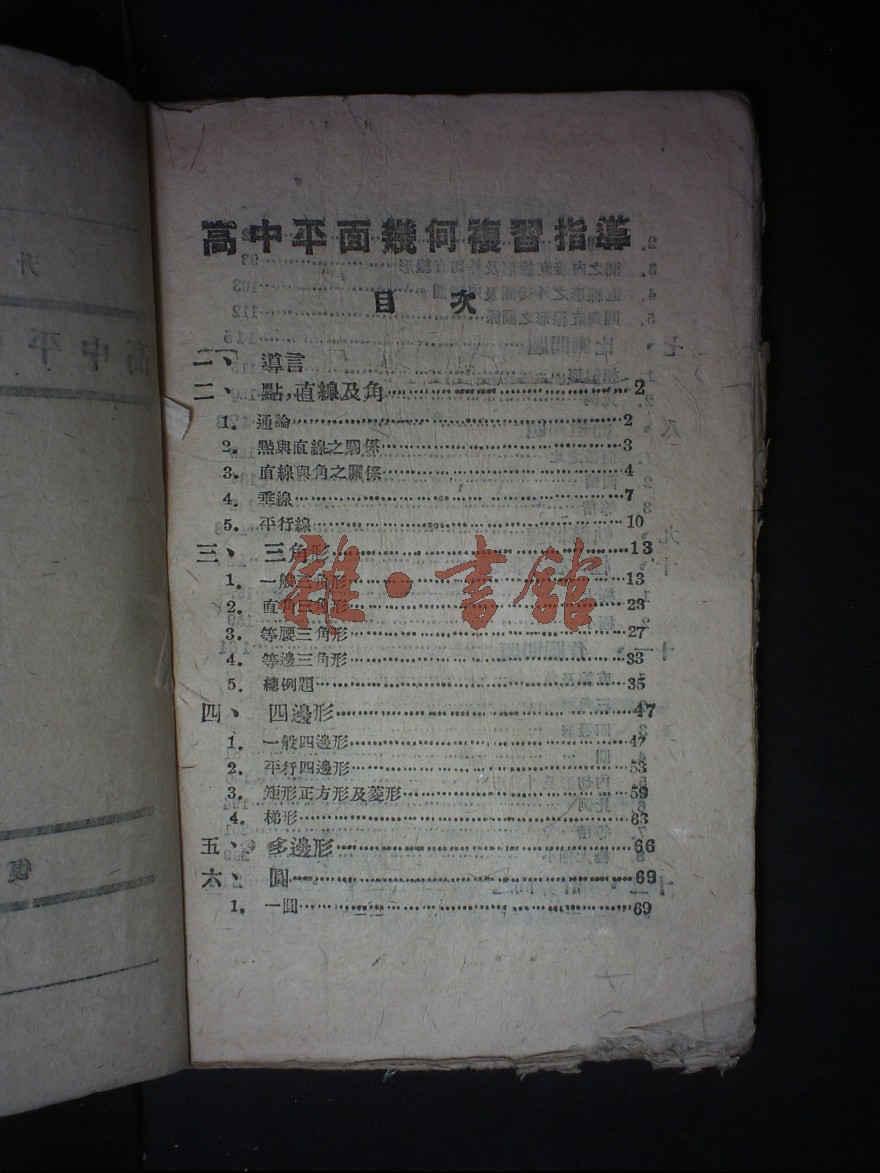 高中平面幾何複習指導
目次
一、導言
二、點,直線及角………2
1. 通論………2
2. 點與直線之關係………3
3. 直線與角之關係………4
4. 垂線………7
5. 平行線………10
三、三角形………13
1. 一般三角形………13
2. 直角三角形………23
3. 等腰三角形………27
4. 等邊三角形………33
5. 總例題………35
四、四邊形………47
1. 一般四邊形………47
2. 平行四邊形………53
3. 矩形正方形及菱形………59
4. 梯形………63
五、多邊形………66
六、圓………69
1. 一圓………69
雜·書館